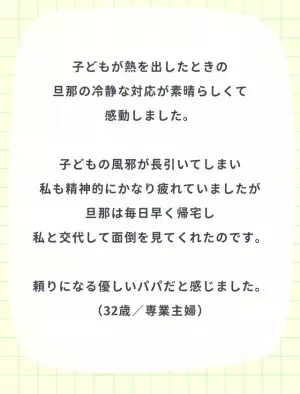 子どもが熱を出したときの
旦那の冷静な対応が素晴らしくて
感動しました。
子どもの風邪が長引いてしまい
私も精神的にかなり疲れていましたが
旦那は毎日早く帰宅し
私と交代して面倒を見てくれたのです。
頼りになる優しいパパだと感じました。
（32歳／専業主婦）